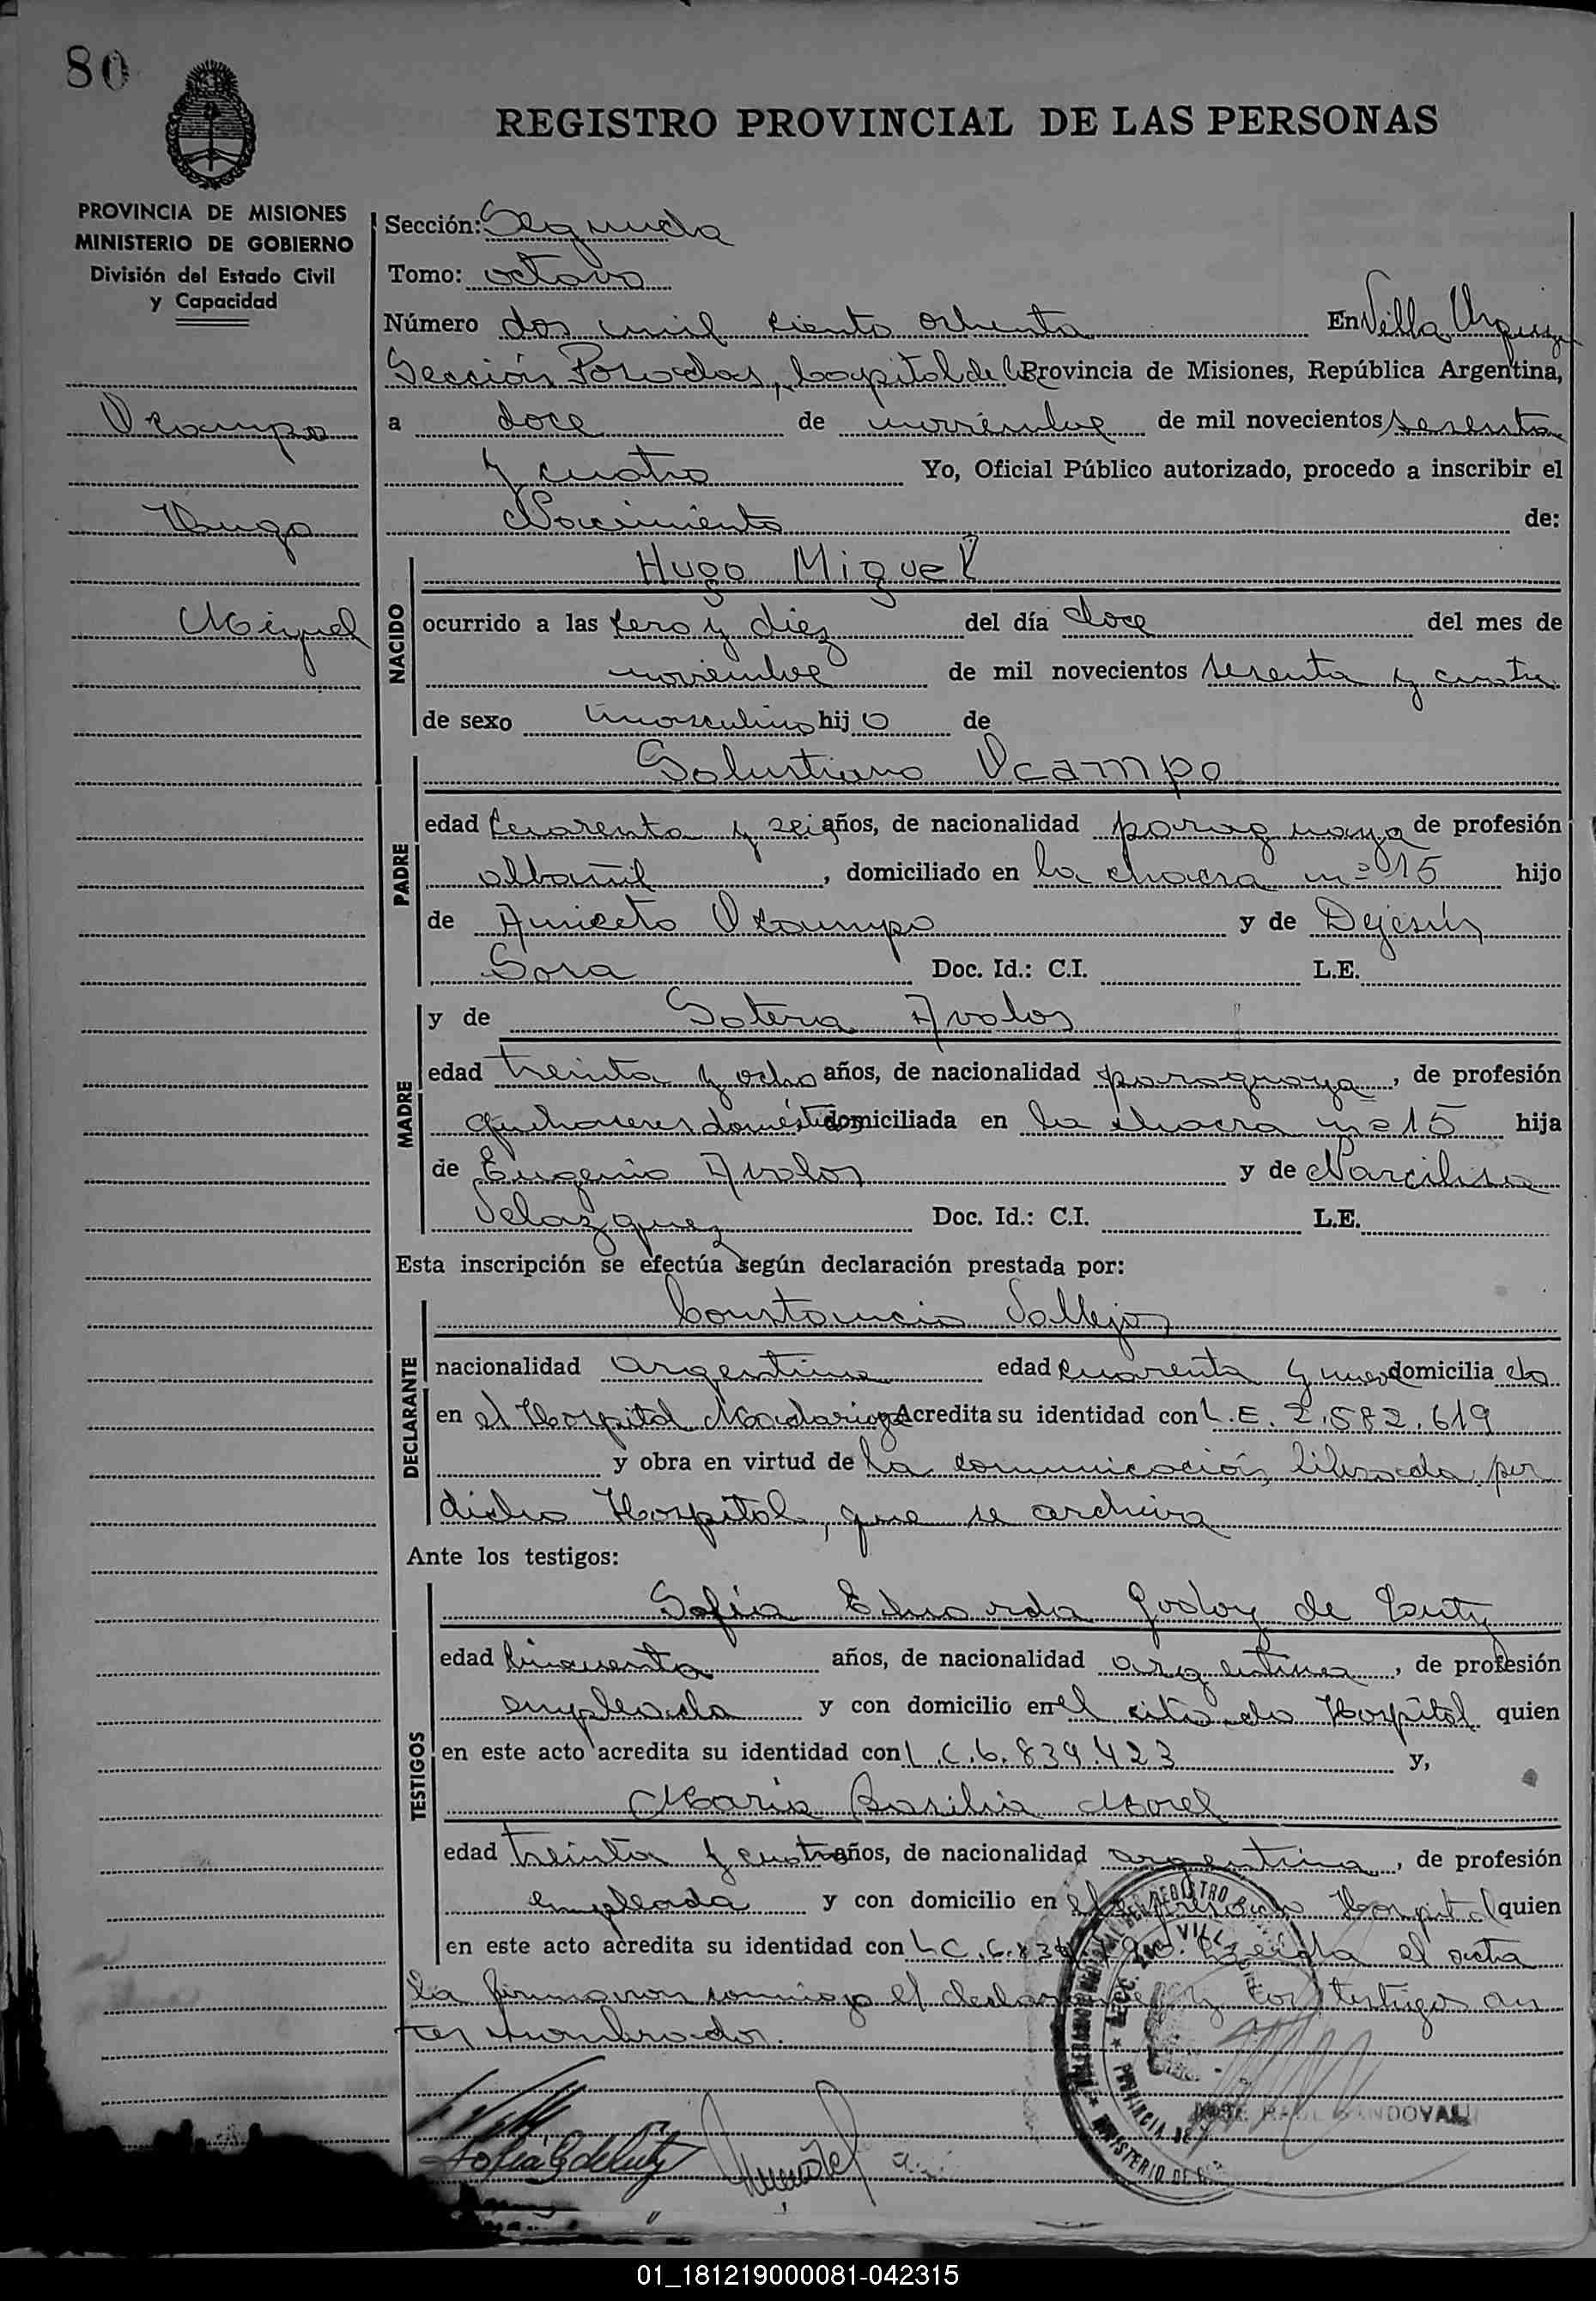 80
REGISTRO PROVINCIAL DE LAS PERSONAS
PROVINCIA DE MISIONES
MINISTERIO DE GOBIERNO
División del Estado Civil
y Capacidad
Ocampo
Hugo
Miguel
Sección: Segunda
Tomo: octavo
Número dos mil ciento ochenta En Villa Urquiza
Sección Posadas, Capital de la Provincia de Misiones, República Argentina,
a doce de noviembre de mil novecientos sesenta
y cuatro Yo, Oficial Público autorizado, procedo a inscribir el
Nacimiento de:
NACIDO
Hugo Miguel
ocurrido a las cero y diez del día doce del mes de
noviembre de mil novecientos sesenta y cuatro
de sexo masculino hijo de
PADRE
Salustiano Ocampo
edad cuarenta y seis años, de nacionalidad paraguaya de profesión
albañil, domiciliado en la chacra nº 15 hijo
de Aniceto Ocampo y de Dejesús
Sosa Doc. Id.: C.I. L.E.
MADRE
y de Sotera Avalos
edad treinta y ocho años, de nacionalidad paraguaya, de profesión
quehaceres domésticos domiciliada en la chacra nº 15 hija
de Eugenio Avalos y de Narcilisa
Velazquez Doc. Id.: C.I. L.E.
Esta inscripción se efectúa según declaración prestada por:
DECLARANTE
Constancio Vallejos
nacionalidad argentina edad cuarenta y nueve domicilia do
en el Hospital Madariaga Acredita su identidad con L.E. 2.582.619
y obra en virtud de la comunicación librada por
dicho Hospital, que se archiva
Ante los testigos:
TESTIGOS
Sofia Eduarda Godoy de Luty
edad cincuenta años, de nacionalidad argentina, de profesión
empleada y con domicilio en el citado Hospital quien
en este acto acredita su identidad con L.C. 6.839.423 y,
Maria Basilia Morel
edad treinta y cuatro años, de nacionalidad argentina, de profesión
empleada y con domicilio en el Hospital quien
en este acto acredita su identidad con L.C. 6. Leida el acta
la firmaron conmigo el declarante y los testigos an
tes nombrados.
REGISTRO
PROVINCIA DE
MINISTERIO DE
Sofia G de Luty
JOSE RAUL SANDOVAL
01_181219000081-042315